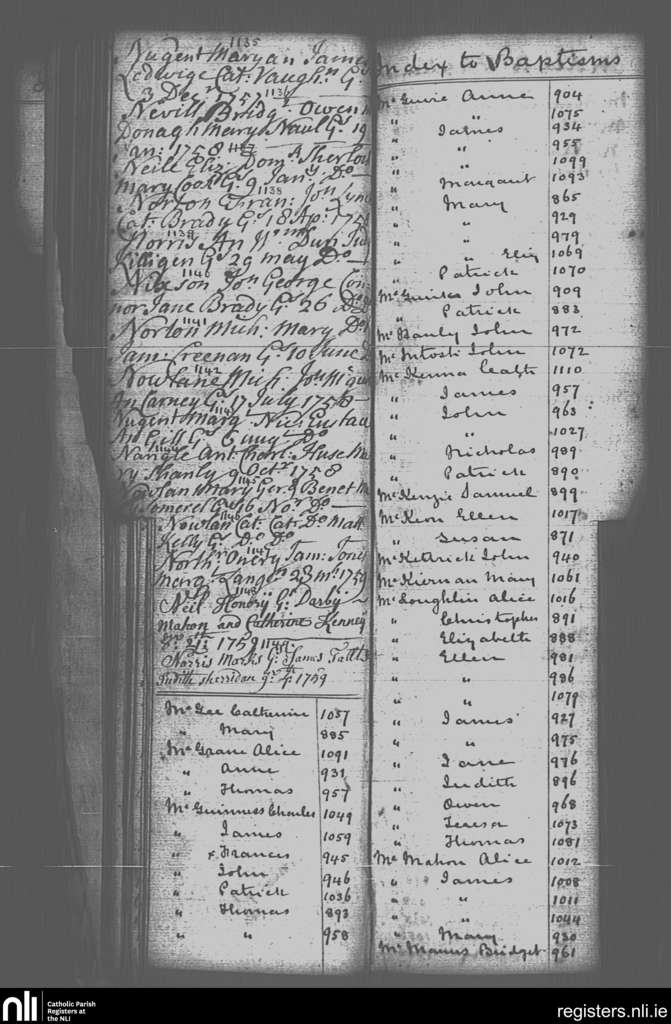 1135
Nugent Maryan James
Ledwige Cat. Vaughn G.
3 Decr 1757 1136
Nevill Bridg. Owen
Donagh Mary Naul Gs 19
Jan: 1758 1137
Neill Eliz: Domk Sherlo
Mary Cook Gs 9 Jany Do
1138
Norton Fran: Jon Lyn
Cat. Brady Gs 18 Ap: 175
1139
Norris An Wm
Gs 29 May Do
1140
Nixson Jon George Con
nor Jane Brady G. 26 Do
1141
Norton Mich: Mary Do
Jam: Creenan Gs 10 June
1142
Nowlane Mich: Jon
An Carney G. 17 July 1758
1143
Nugent Marg. Nics Eustac
An Gill Gs 6 Aug Do
1144
Nangle Ant Charl: Huse Ma
ry Shanly 9 Octr 1758
1145
Nowlan Mary Ger.d Benet
G. 16 Nor Do
1146
Nowlan Cat. Cat. Do Matt
Kelly G. Do Do
1147
North Onery Jam: Jones
Marg. Langn 23 Mh 1759
1148
Neil Honory Gs Darby
Mahon and Catherine Kenney
1759 1149
Norris Marks Gs James Falls
Judith Sherridan 9r 4th 1759
Mc Gee Catherine 1037
" Mary 885
Mc Grane Alice 1091
" Anne 931
" Thomas 957
Mc Guinness Charles 1049
" James 1059
" x Frances 945
" John 946
" Patrick 1036
" Thomas 893
" " 958
Index to Baptisms
Mc Guire Anne 904
" " 1075
" James 934
" " 955
" " 1099
" Margaret 1093
" Mary 865
" " 929
" " 979
" " Eliz 1069
" Patrick 1070
Mc Guirke John 909
" Patrick 883
Mc Hanly John 972
Mc Intosh John 1072
Mc Kenna Cealth 1110
" James 957
" John 963
" " 1027
" Nicholas 989
" Patrick 890
Mc Kenzie Samuel 899
Mc Keon Ellen 1017
" Susan 871
Mc Ketrick John 940
Mc Kiernan Mary 1061
Mc Loughlin Alice 1016
" Christopher 891
" Elizabeth 888
" Ellen 981
" " 986
" " 1079
" James 927
" " 975
" Jane 976
" Judith 896
" Owen 968
" Teresa 1073
" Thomas 1081
Mc Mahon Alice 1012
" James 1008
" " 1011
" " 1044
" Mary 930
Mc Manus Bridget 961
nli
Catholic Parish
Registers at
the NLI
registers.nli.ie